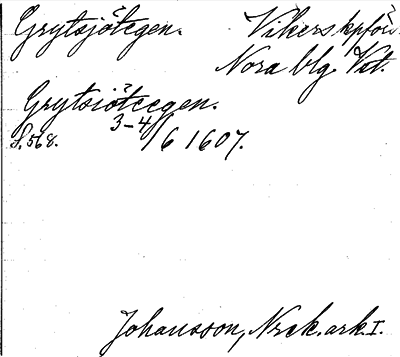 Grytsjötegen. Vikers kpförs.
Nora blg. Vst.
Grytsiöteegen.
S. 568. 3-4/6 1607.
Johansson, Nrck. ark. I.